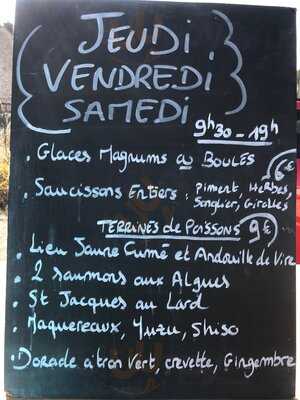 JEUDI
VENDREDI
SAMEDI
9h30 - 19h
. Glaces Magnums ou BOULES
. Saucissons Entiers : Piment, Herbes, 6€
Sanglier, Girolles
TERRINES de POISSONS 9€
. Lieu Jaune Cumé et Andouille de Vire
. 2 saumons aux Algues
. St Jacques au Lard
. Maquereaux, Yuzu, Shiso
. Dorade citron Vert, crevette, Gingembre